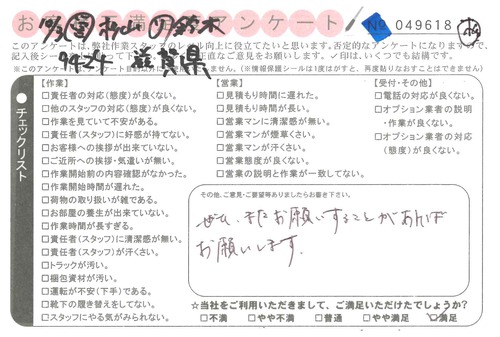 お客様満足アンケート
No 049618
10/3 鈴木
94-24 滋賀県
このアンケートは、弊社作業スタッフのレベル向上に役立てたいと思います。否定的なアンケートになりますので、
記入後シー 正直なご意見をお願いします。✓印は、いくつでも結構です。
※このアンケート ありません。(※情報保護シールは1度はがすと、再度貼りなおすことはできません)
チェックリスト
【作業】
□責任者の対応(態度)が良くない。
□他のスタッフの対応(態度)が良くない。
□作業を見ていて不安がある。
□責任者(スタッフ)に好感が持てない。
□お客様への挨拶が出来ていない。
□ご近所への挨拶・気遣いが無い。
□作業開始前の内容確認がなかった。
□作業開始時間が遅れた。
□荷物の取り扱いが雑である。
□お部屋の養生が出来ていない。
□作業時間が長すぎる。
□責任者(スタッフ)に清潔感が無い。
□責任者(スタッフ)が汗くさい。
□トラックが汚い。
□梱包資材が汚い。
□運転が不安(下手)である。
□靴下の履き替えをしてない。
□スタッフにやる気がみられない。
【営業】
□見積もり時間に遅れた。
□見積もり時間が長い。
□営業マンに清潔感が無い。
□営業マンが煙草くさい。
□営業マンが汗くさい。
□営業態度が良くない。
□営業の説明と作業が一致してない。
【受付・その他】
□電話の対応が良くない。
□オプション業者の説明
・作業が良くない。
□オプション業者の対応
(態度)が良くない。
その他、ご意見・ご要望等ありましたらお書き下さい。
ぜひ、またお願いすることがあれば
お願いします。
☆当社をご利用いただきまして、ご満足いただけたでしょうか?
□不満 □やや不満 □普通 □やや満足 ☑満足